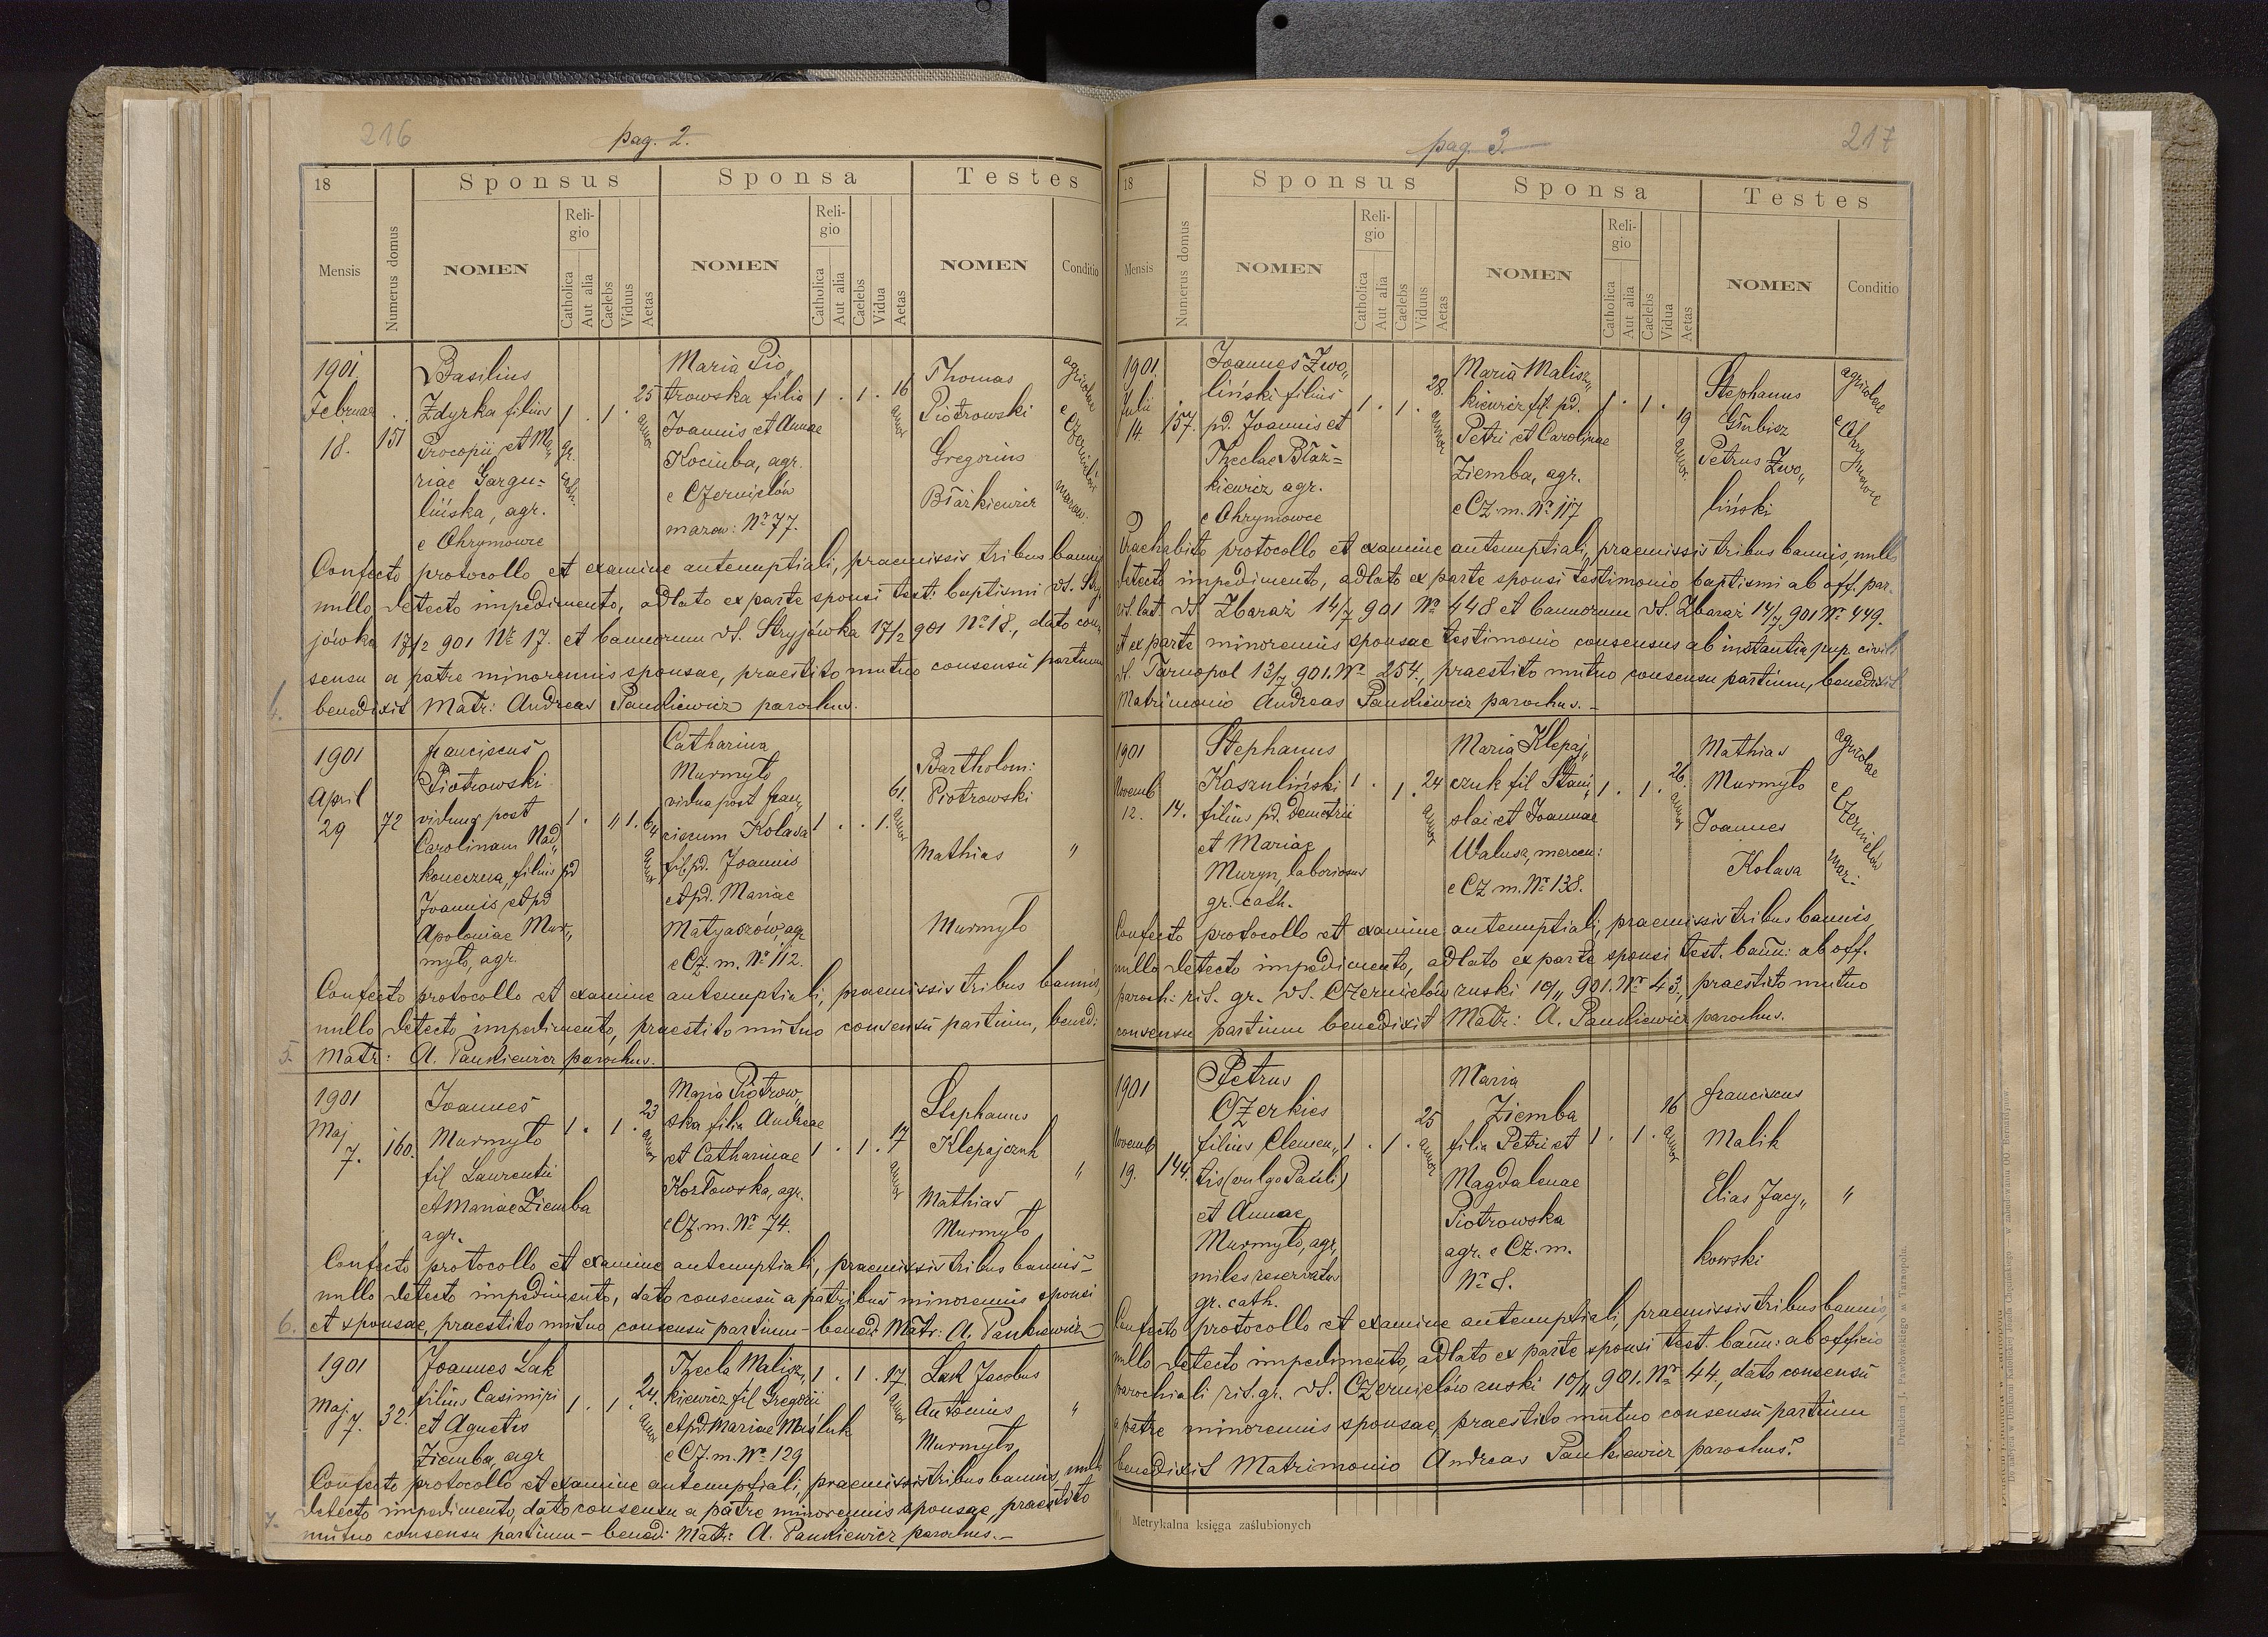 216
pag. 2.
18
Sponsus
Sponsa
Testes
Mensis
Numerus domus
NOMEN
Reli-
gio
Catholica
Aut alia
Caelebs
Viduus
Aetas
NOMEN
Reli-
gio
Catholica
Aut alia
Caelebs
Vidua
Aetas
NOMEN
Conditio
1901
Februar
18.
151
Basilius
Zdyrka filius
Procopii et Ma„
riae Gargu=
lińska, agr.
e Ohrymowce
1 . 1 . 25 annor
gr. cath.
Maria Pio„
trowska filia
Joannis et Annae
Kociuba, agr.
e Czernielów
mazow: Nr 77.
1 . 1 . 16 annor
Thomas
Piotrowski
Gregorius
Błażkiewicz
agricolae
e Czernielów
mazow:
Confecto protocollo et examine antenuptiali, praemissis tribus bannis
nullo detecto impedimento, adlato ex parte sponsi test: baptismi dt. Stry
jówka 17/2 901 Nr 17. et bannorum dt. Stryjówka 17/2 901 Nr 18., dato con„
sensu a patre minorennis sponsae, praestito mutuo consensu partium
benedixit Matr: Andreas Pankiewicz parochus.
4.
1901
April
29
72
Franciscus
Piotrowski
viduus post
Carolinam Nad„
koneczna, filius pd
Joannis et pd
Apoloniae Mur„
myło, agr.
1 . „ 1 . 64 annor
Catharina
Murmyło
vidua post Fran„
ciscum Kolasa
fil. pd. Joannis
et pd. Mariae
Matyaszów, agr
e Cz. m. Nr 112.
1 . . 1 . 61. annor
Bartholom:
Piotrowski
Mathias „
Murmyło
Confecto protocollo et examine antenuptiali, praemissis tribus bannis,
nullo detecto impedimento, praestito mutuo consensu partium, bened:
5. Matr: A. Pankiewicz parochus.
1901
Maj
7.
160.
Joannes
Murmyło
fil Laurentii
et Mariae Ziemba
agr.
1 . 1 . 23 annor
Maria Piotrow„
ska filia Andreae
et Catharinae
Kozłowska, agr.
e Cz. m. Nr 74.
1 . 1 . 17 annor
Stephanus
Klepajczuk „
Mathias
Murmyło
Confecto protocollo et examine antenuptiali, praemissis tribus bannis-
nullo detecto impedimento, dato consensu a patribus minorennis sponsi
6. et sponsae, praestito mutuo consensu partium - bened: Matr: A. Pankiewicz
1901
Maj
7.
32.
Joannes Lak
filius Casimiri
et Agnetis
Ziemba, agr
1 . 1 . 24. annor
Thecla Malisz„
kiewicz fil Gregorii
et pd. Mariae Maśluk
e Cz. m. Nr 129
1 . 1 . 17 annor
Lak Jacobus
Antonius „
Murmyło
Confecto protocollo et examine antenuptiali, praemissis tribus bannis, nullo
detecto impedimento, dato consensu a patre minorennis sponsae, praestito
7. mutuo consensu partium - bened: Matr: A. Pankiewicz parochus.-
217
pag. 3.
18
Sponsus
Sponsa
Testes
Mensis
Numerus domus
NOMEN
Reli-
gio
Catholica
Aut alia
Caelebs
Viduus
Aetas
NOMEN
Reli-
gio
Catholica
Aut alia
Caelebs
Vidua
Aetas
NOMEN
Conditio
1901.
Julii
14.
157.
Joannes Zwo„
liński filius
pd. Joannis et
Theclae Błaż=
kiewicz agr.
e Ohrymowce
1 . 1 . 28. annor
Maria Malisz„
kiewicz fil. pd.
Petri et Carolinae
Ziemba, agr.
e Cz. m. Nr 117
1 . 1 . 19 annor.
Stephanus
Gurbisz
Petrus Zwo„
liński
agricolae
e Ohry
mowce
Praehabito protocollo et examine antenuptiali, praemissis tribus bannis, nullo
detecto impedimento, adlato ex parte sponsi testimonio baptismi ab off. par.
rit. lat. dt. Zbaraż 14/7 901 Nr 448 et bannorum dt. Zbaraż 14/7 901 Nr 449.
et ex parte minorennis sponsae testimonio consensus ab instantia pup. civili
dt. Tarnopol 13/7 901. Nr 254., praestito mutuo consensu partium, benedixit
Matrimonio Andreas Pankiewicz parochus.-
1901
Novemb
12.
14.
Stephanus
Kaszuliński
filius pd. Demetrii
et Mariae
Muryn, laboriosus
gr. cath.
1 . 1 . 24 annor
Maria Klepaj„
czuk fil Stani„
slai et Joannae
Walusz, mercen:
e Cz m. Nr 138.
1 . 1 . 26. annor
Mathias
Murmyło
Joannes
Kolasa
agricolae
e Czernielów
maz.
Confecto protocollo et examine antenuptiali, praemissis tribus bannis,
nullo detecto impedimento, adlato ex parte sponsi test. bann: ab off.
paroch: rit. gr. dt. Czernielów ruski 10/11 901. Nr 43, praestito mutuo
consensu partium benedixit Matr: A. Pankiewicz parochus.
1901
Novemb
19.
144.
Petrus
Czerkies
filius Clemen„
tis (vulgo Pauli)
et Annae
Murmyło, agr,
miles reservatus
gr. cath.
1 . 1 . 25 annor
Maria
Ziemba
filia Petri et
Magdalenae
Piotrowska
agr. e Cz. m.
Nr 8.
1 . 1 . 16 annor
Franciscus
Malik
Elias Jacy„ „
kowski
Confecto protocollo et examine antenuptiali, praemissis tribus bannis,
nullo detecto impedimento, adlato ex parte sponsi test. bann: ab officio
parochiali rit. gr. dt. Czernielów ruski 10/11 901. Nr 44., dato consensu
a patre minorennis sponsae, praestito mutuo consensu partium
benedixit Matrimonio Andreas Pankiewicz parochus.
Metrykalna księga zaślubionych
Drukiem J. Pawłowskiego w Tarnopolu.